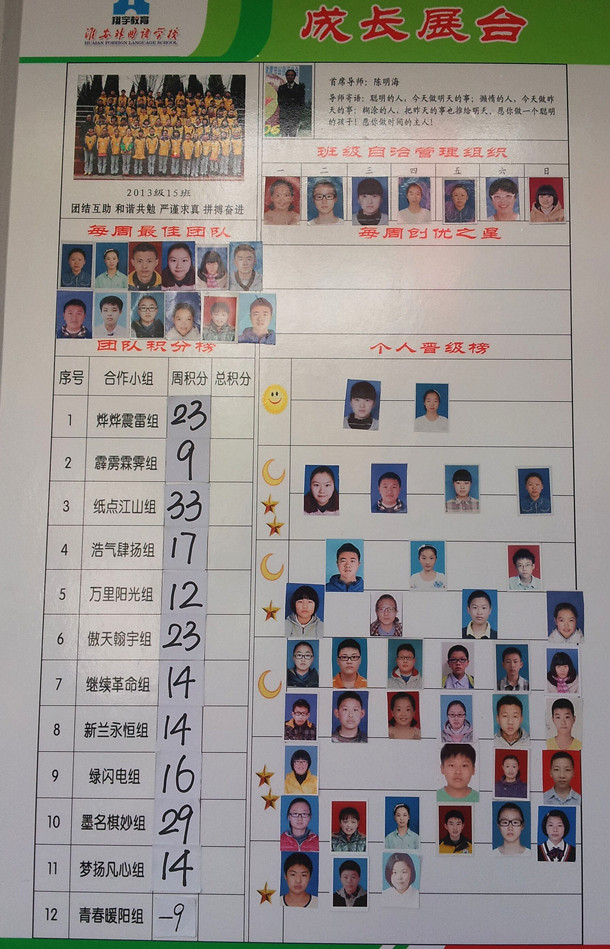 翔宇教育
淮安外国语学校
HUAIAN FOREIGN LANGUAGE SCHOOL
成长展台
2013级15班
团结互助 和谐共勉 严谨求真 拼搏奋进
首席导师：陈明海
导师寄语：聪明的人，今天做明天的事；懒惰的人，今天做昨
天的事；糊涂的人，把昨天的事也推给明天。愿你做一个聪明
的孩子！愿你做时间的主人！
班级自治管理组织
一 二 三 四 五 六 日
每周最佳团队
每周创优之星
团队积分榜
个人晋级榜
序号 合作小组 周积分 总积分
1 烨烨震雷组 23
2 霹雳霖霁组 9
3 纸点江山组 33
4 浩气肆扬组 17
5 万里阳光组 12
6 傲天翰宇组 23
7 继续革命组 14
8 新兰永恒组 14
9 绿闪电组 16
10 墨名棋妙组 29
11 梦扬凡心组 14
12 青春暖阳组 -9